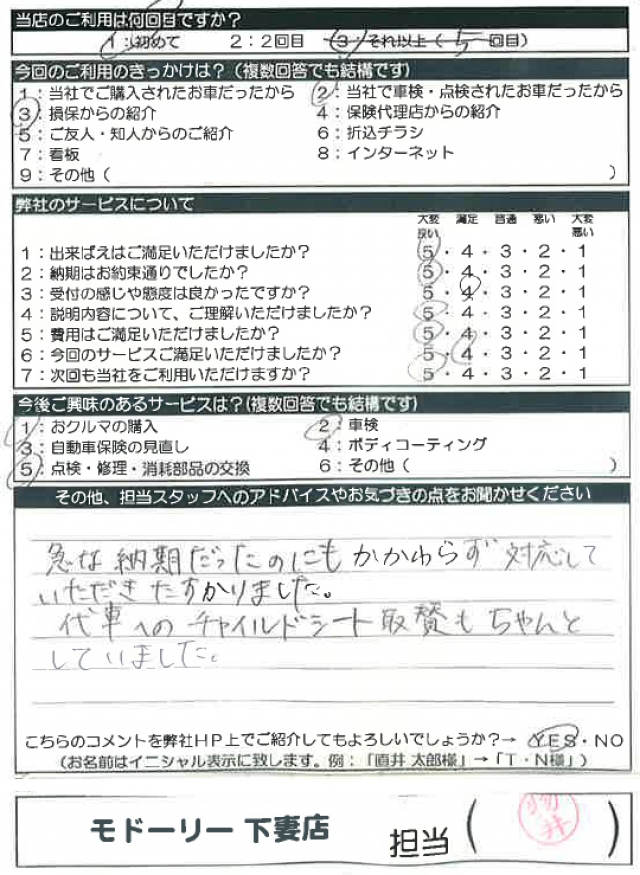 当店のご利用は何回目ですか?
1:初めて 2:2回目 3:それ以上( 5 回目)
今回のご利用のきっかけは?(複数回答でも結構です)
1:当社でご購入されたお車だったから 2:当社で車検・点検されたお車だったから
3:損保からの紹介 4:保険代理店からの紹介
5:ご友人・知人からのご紹介 6:折込チラシ
7:看板 8:インターネット
9:その他( )
弊社のサービスについて
大変良い 満足 普通 悪い 大変悪い
1:出来ばえはご満足いただけましたか? 5・4・3・2・1
2:納期はお約束通りでしたか? 5・4・3・2・1
3:受付の感じや態度は良かったですか? 5・4・3・2・1
4:説明内容について、ご理解いただけましたか? 5・4・3・2・1
5:費用はご満足いただけましたか? 5・4・3・2・1
6:今回のサービスご満足いただけましたか? 5・4・3・2・1
7:次回も当社をご利用いただけますか? 5・4・3・2・1
今後ご興味のあるサービスは?(複数回答でも結構です)
1:おクルマの購入 2:車検
3:自動車保険の見直し 4:ボディコーティング
5:点検・修理・消耗部品の交換 6:その他( )
その他、担当スタッフへのアドバイスやお気づきの点をお聞かせください
急な納期だったのにもかかわらず対応して
いただきたすかりました。
代車へのチャイルドシート取賛もちゃんと
していました。
こちらのコメントを弊社HP上でご紹介してもよろしいでしょうか?→ YES・NO
(お名前はイニシャル表示に致します。例:「直井 太郎様」→「T・N様」)
モドーリー 下妻店 担当( )